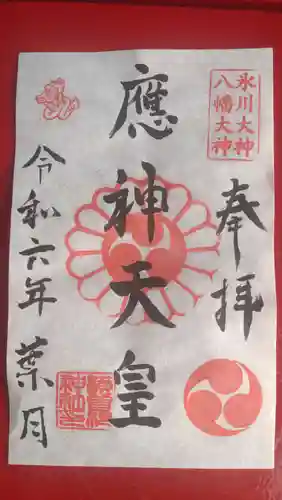 氷川大神
八幡大神
奉拝
應神天皇
令和六年 葉月